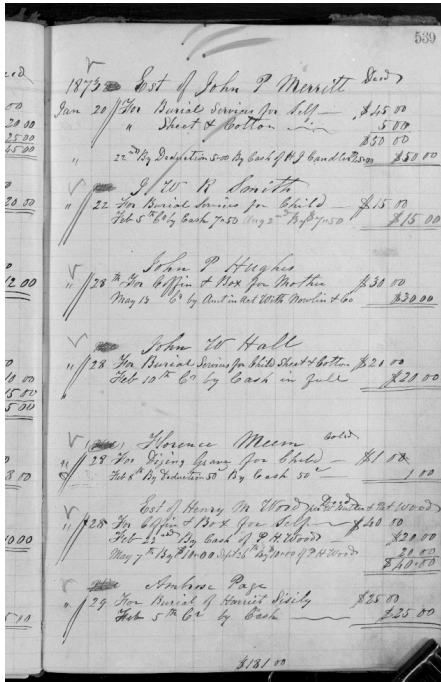 539
1873 Est of John P Merritt Decd
Jan 20 For Burial Services for Self — $45 00
" Sheet & Cotton — 5 00
$50 00
" 22nd By Deduction 5 00 By Cash of H J Candler 45 00 $50 00
J W R Smith
" 22 For Burial Services for Child — $15 00
Feb 5th Cr by Cash 7.50 Aug 2nd By $7.50 $15 00
John P Hughes
" 28th For Coffin & Box for Mother $30 00
May 13 Cr by Amt in act With Nowlin & Co $30 00
John W Hall
" 28 For Burial Services for Child Sheet & Cotton $20 00
Feb 10th Cr by Cash in full $20 00
Florence Meem Cold
" 28 For Diging Grave for Child — $1 00
Feb 8th By Deduction 50 By Cash 50c 1 00
Est of Henry M Wood Decd
" 28 For Coffin & Box for Self — $40 00
Feb 22nd By Cash of P H Wood $20 00
May 7th By $10.00 Sept 26th By $10.00 of P H Wood 20 00
$40.00
Ambrose Page
" 29 For Burial of Harriet Sisily $25 00
Feb 5th Cr by Cash — $25 00
$181 00
20 00
25 00
45 00
20 00
12 00
10 00
15 00
5 00
8 00
10 00